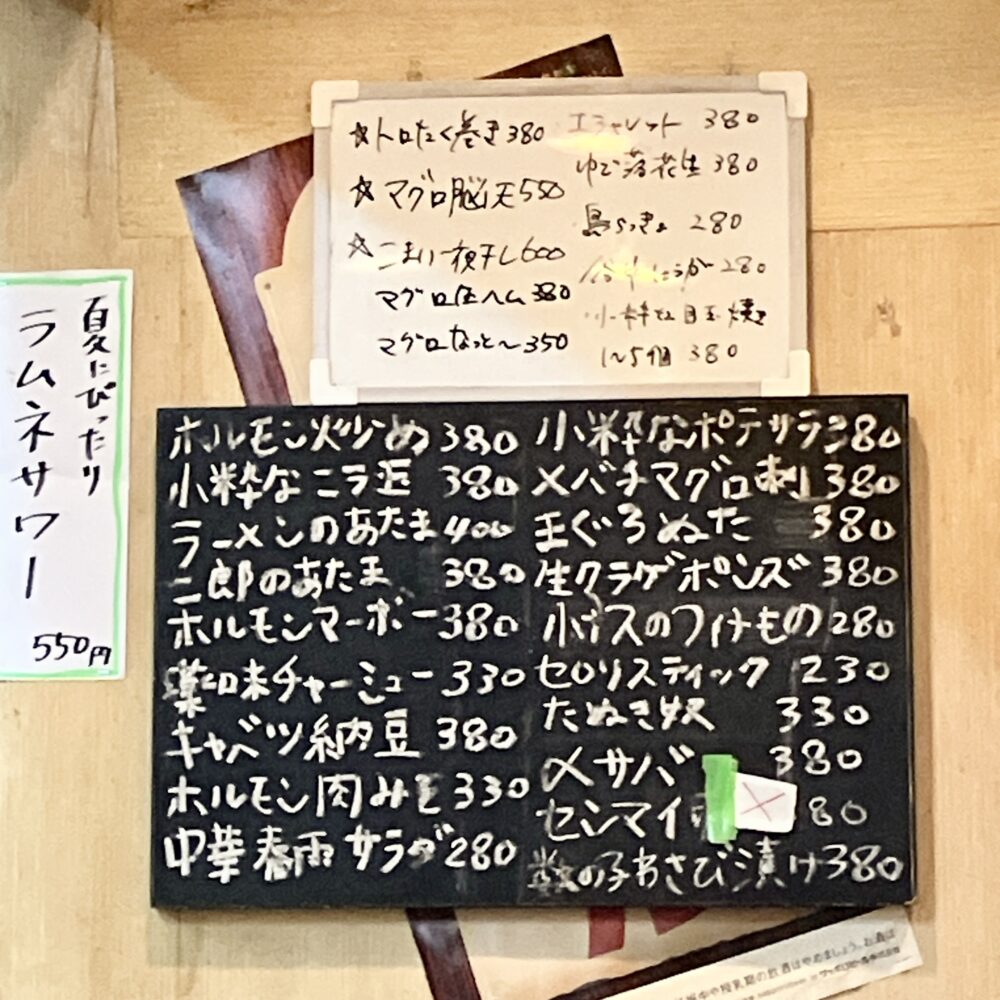 夏にぴったり
ラムネサワー
550円
☆トロたく巻き380
☆マグロ脳天550
☆こまい一夜干し600
マグロ生ハム380
マグロなっとー350
エシャレット 380
ゆで落花生 380
島らっきょ 280
谷中しょうが 280
小粋な目玉焼き
1〜5個 380
ホルモン炒め380
小粋なニラ玉 380
ラーメンのあたま400
二郎のあたま 380
ホルモンマーボー380
薬味チャーシュー330
キャベツ納豆380
ホルモン肉みそ330
中華春雨サラダ280
小粋なポテサラ380
メバチマグロ刺380
まぐろぬた 380
生クラゲポンズ380
小ナスのつけもの280
セロリスティック 230
たぬき奴 330
〆サバ 380
センマイ 80
数の子わさび漬け380
中や授乳期の飲酒はやめましょう。お酒は